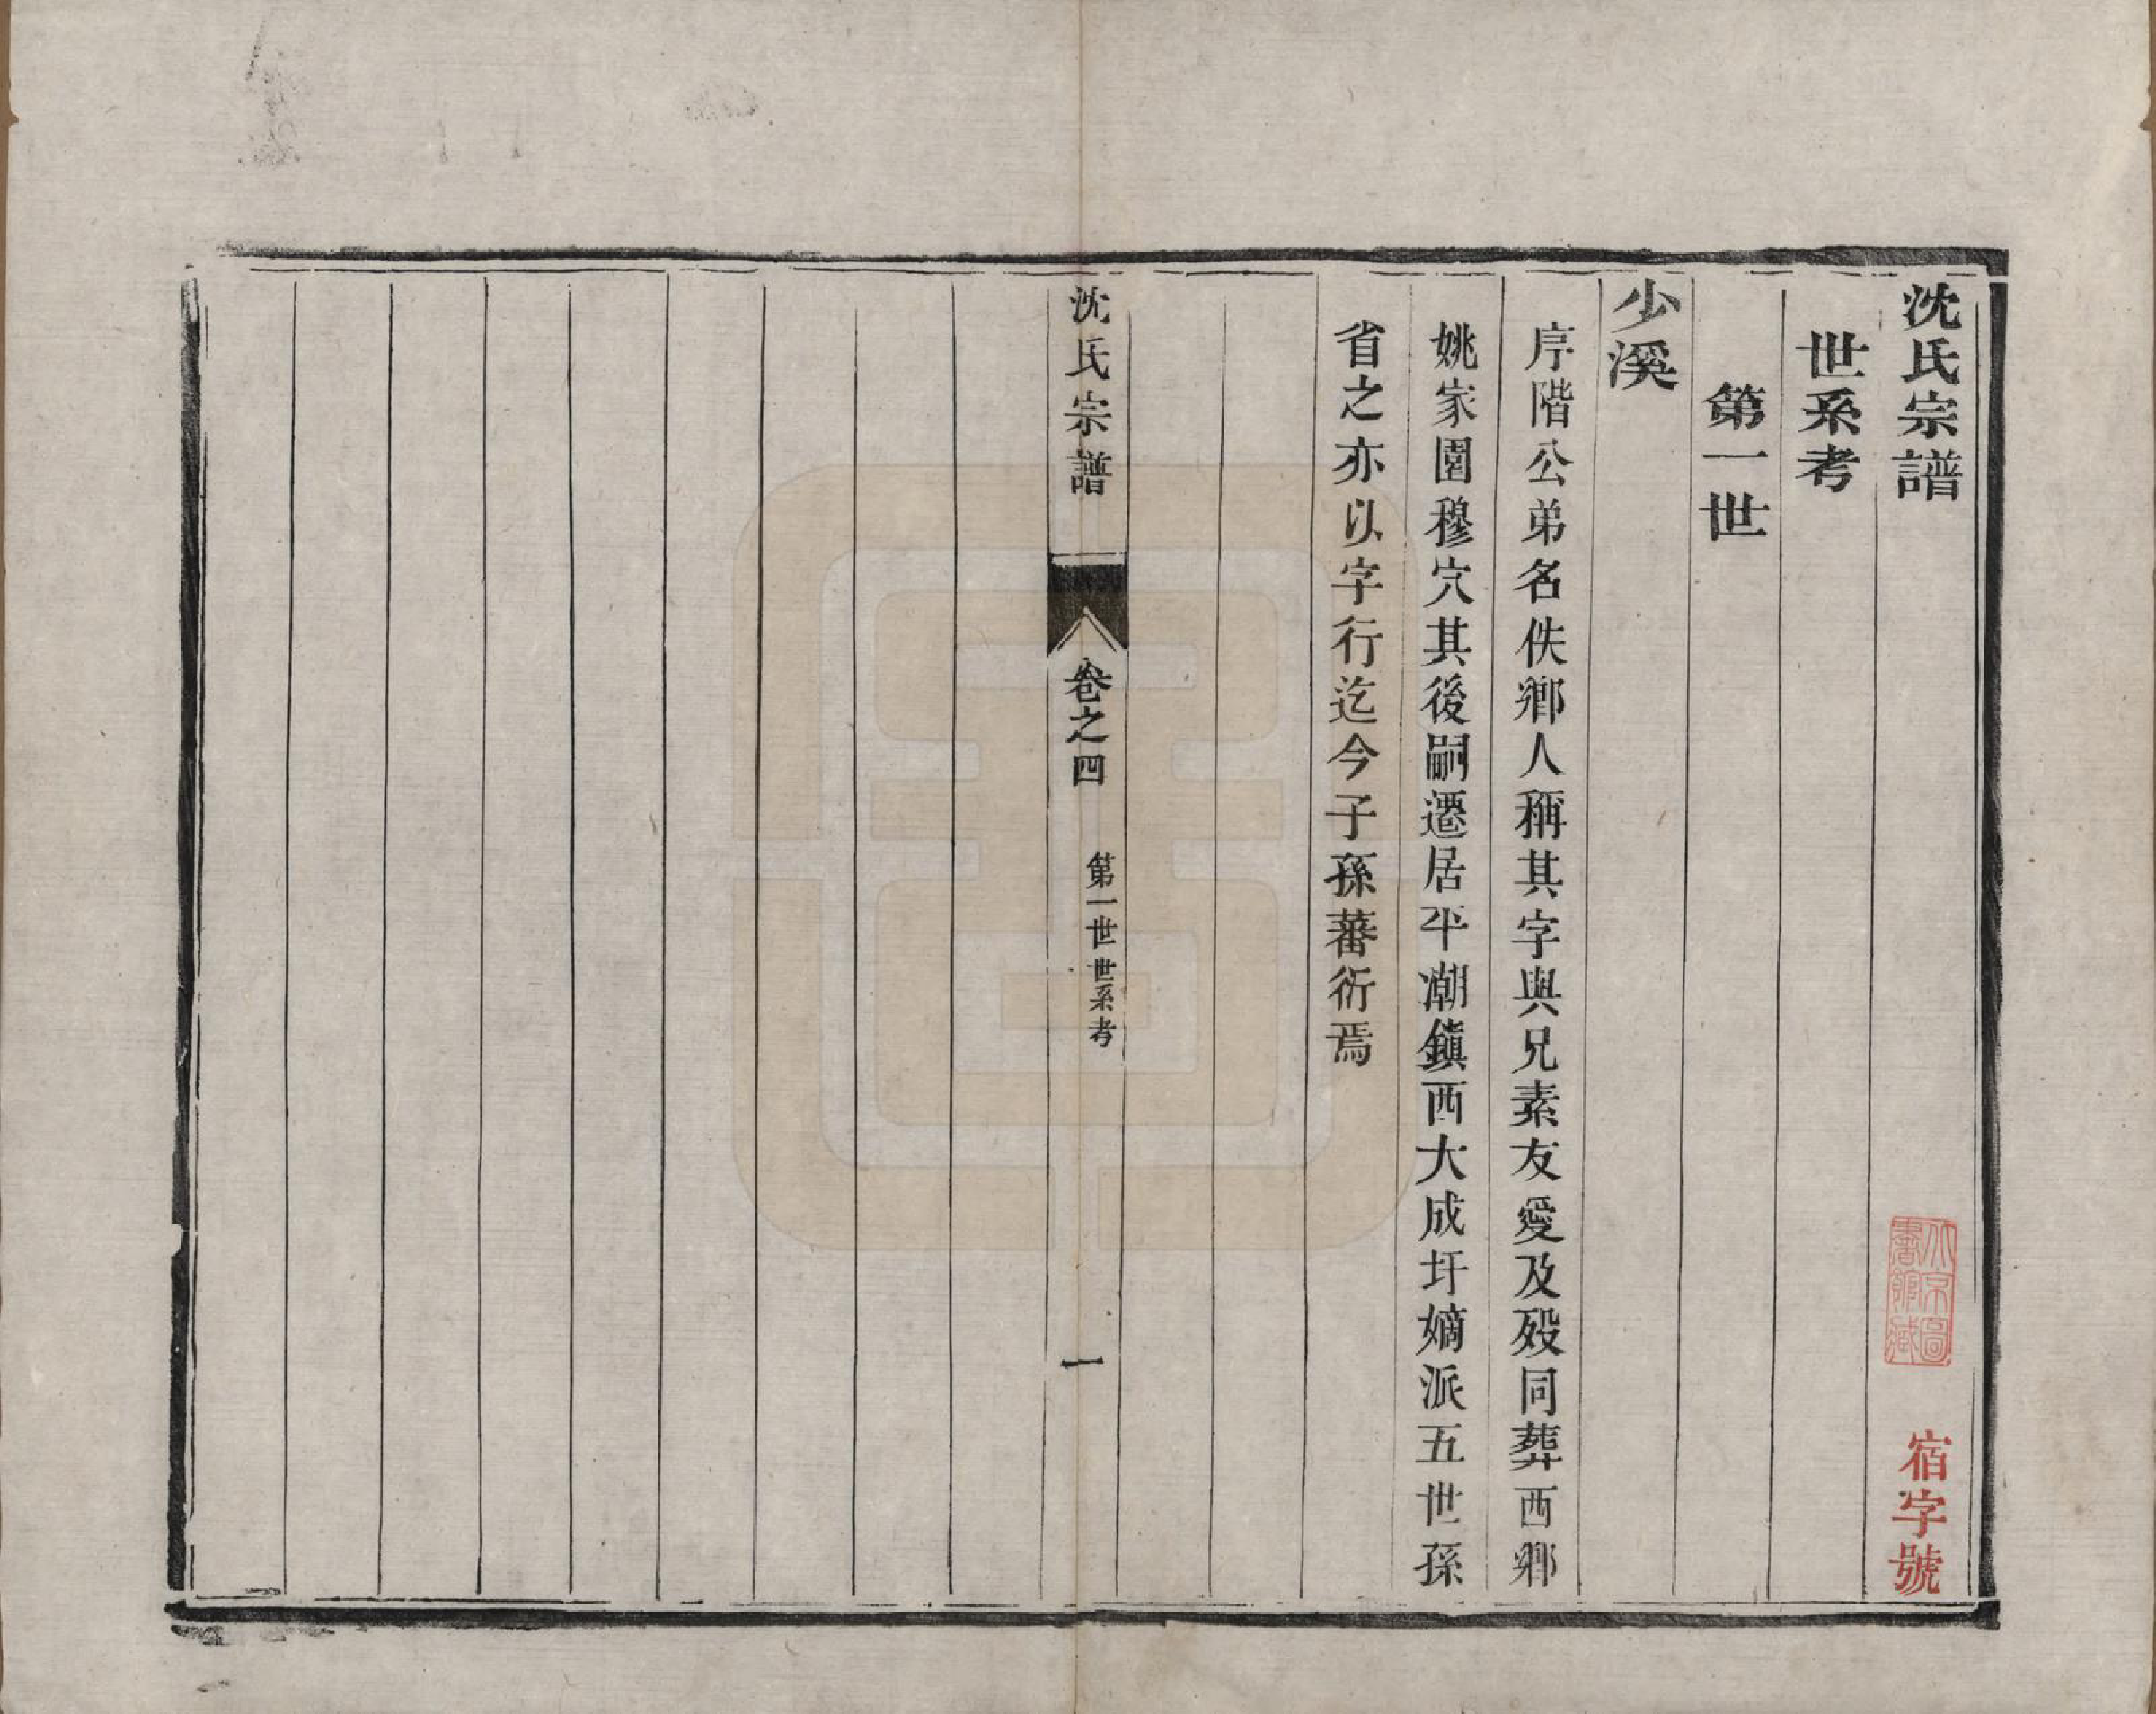 沈氏宗譜
世系考
第一世
少溪
序階公弟名佚鄉人稱其字與兄素友愛及歿同葬西鄉
姚家園穆穴其後嗣遷居平潮鎮西大成圩嫡派五世孫
省之亦以字行迄今子孫蕃衍焉
沈氏宗譜
卷之四
第一世世系考
一
北京圖
書館藏
宿字號